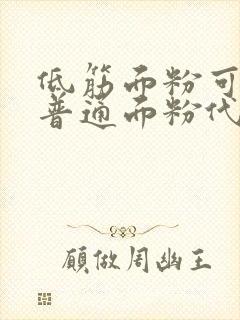 低筋面粉可
普通面粉代
願做周幽王